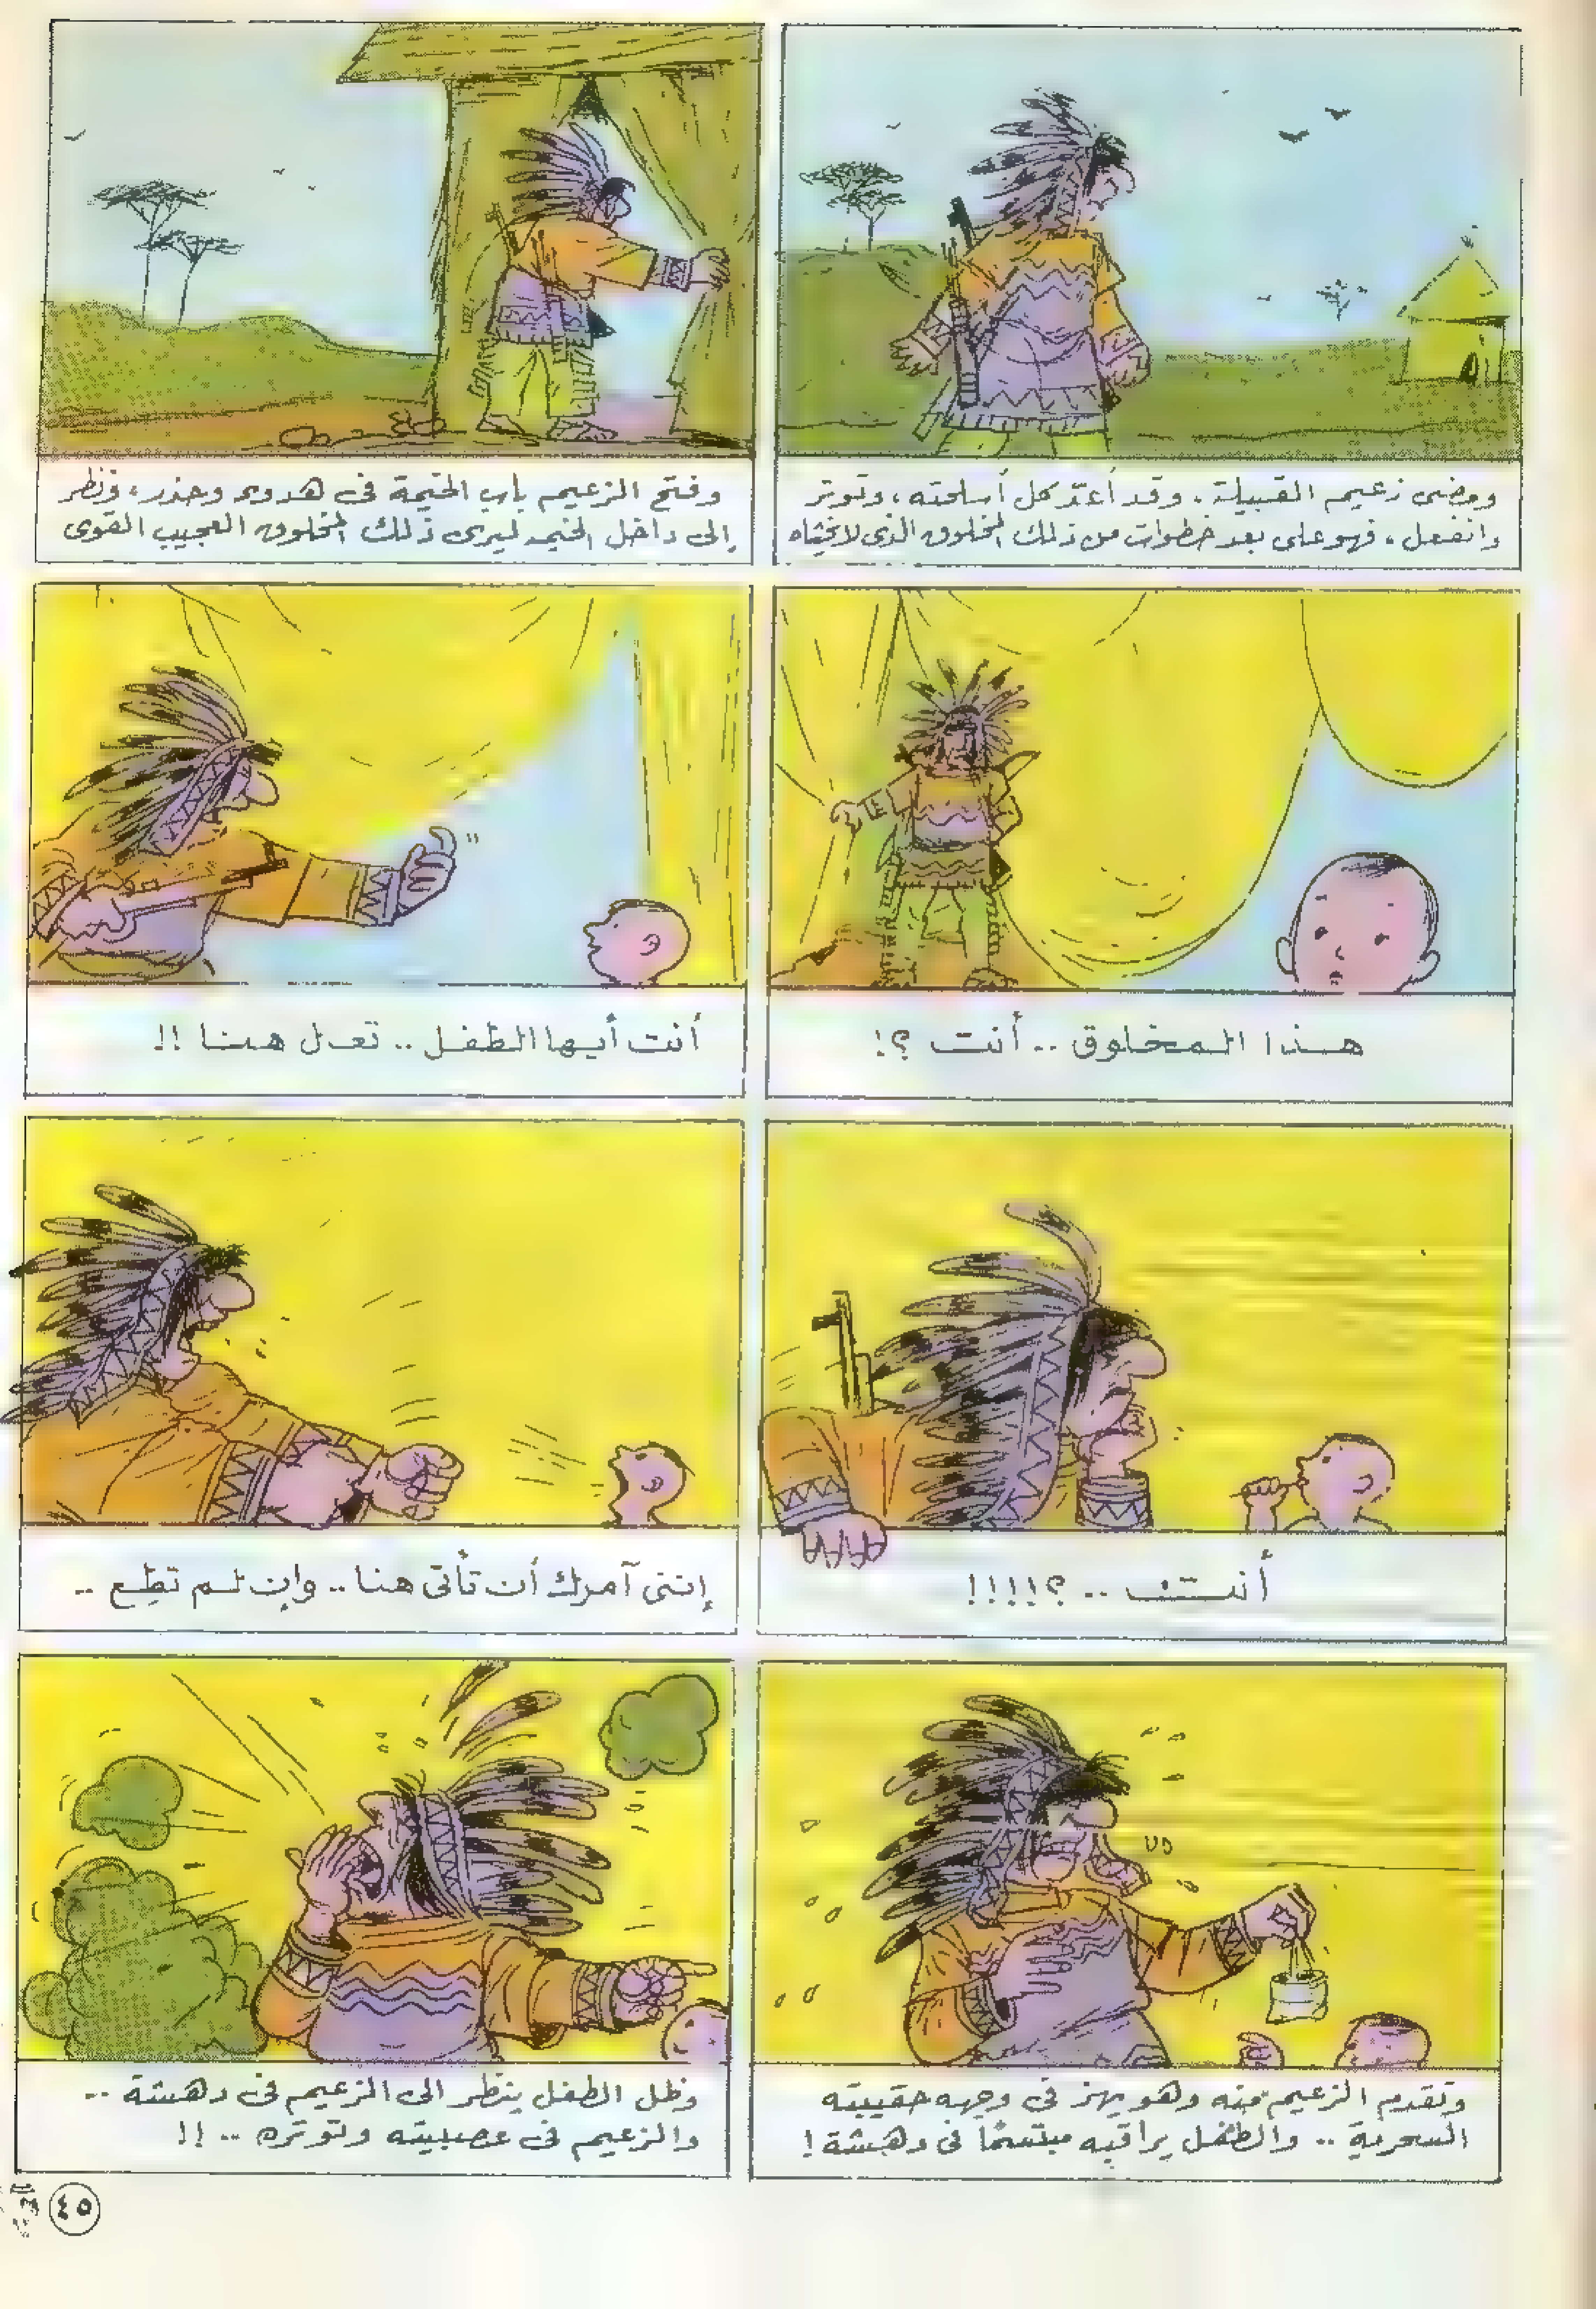 ومضى زعيم القبيلة، وقد أعدّ كل أسلحته، وتوتر
وانفعل، فهو على بعد خطوات من ذلك المخلوق الذى لا يخشاه
وفتح الزعيم باب الخيمة فى هدوء وحذر، ونظر
إلى داخل الخيمه ليرى ذلك المخلوق العجيب القوى
هذا المخلوق .. أنت ؟!
أنت أيها الطفل .. تعال هنا !!
أنت .. ؟!!!!
إننى آمرك أن تأتى هنا .. وإن لم تطع ..
وتقدم الزعيم منه وهو يهز فى وجهه حقيبته
السحرية .. والطفل يراقبه مبتسمًا فى دهشة !
وظل الطفل ينظر الى الزعيم فى دهشة ..
والزعيم فى عصبيته وتوتره .. !!
٤٥